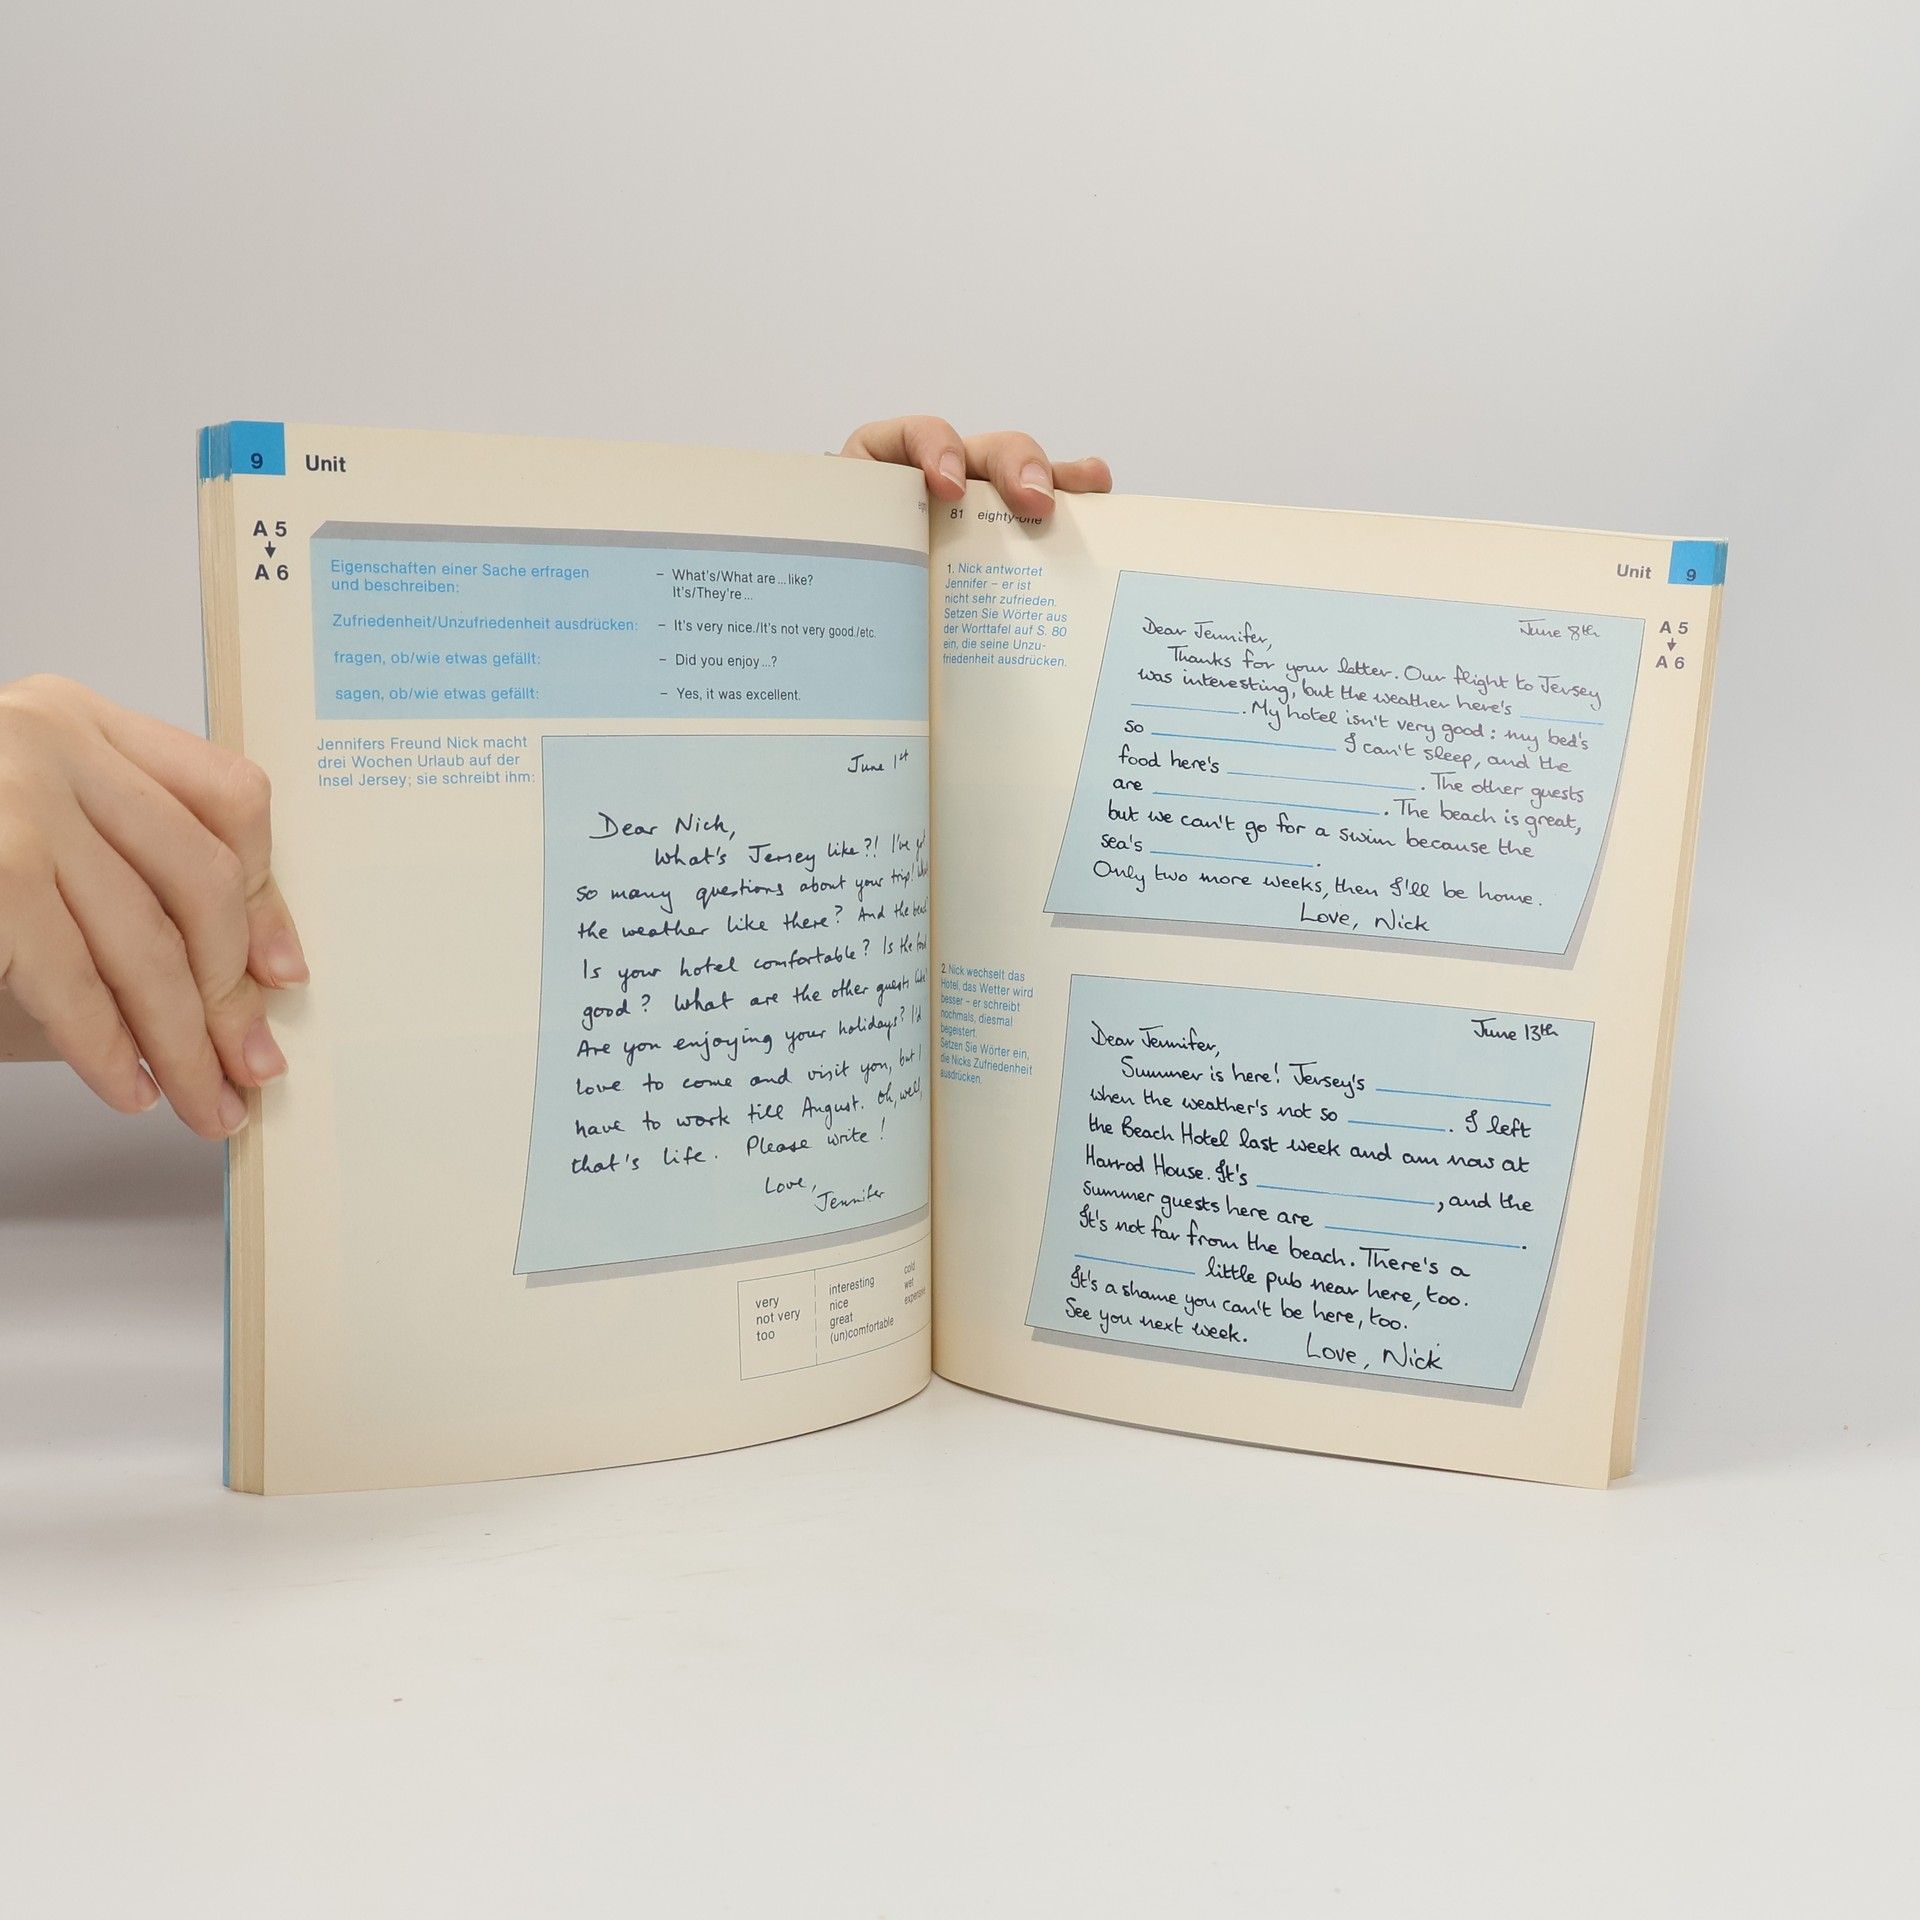 9 Unit
A 5
A 6
Eigenschaften einer Sache erfragen
und beschreiben:
– What's/What are ... like?
It's/They're ...
Zufriedenheit/Unzufriedenheit ausdrücken:
– It's very nice./It's not very good./etc.
fragen, ob/wie etwas gefällt:
– Did you enjoy ...?
sagen, ob/wie etwas gefällt:
– Yes, it was excellent.
Jennifers Freund Nick macht
drei Wochen Urlaub auf der
Insel Jersey; sie schreibt ihm:
June 1st
Dear Nick,
What's Jersey like?! I've
so many questions about your trip!
the weather like there? And the
Is your hotel comfortable? Is the
good? What are the other guests
Are you enjoying your holidays? I'd
love to come and visit you, but I
have to work till August. Oh, well,
that's life. Please write!
Love,
Jennifer
very
not very
too
interesting
nice
great
(un)comfortable
cold
wet
expensive
81 eighty-one
Unit 9
A 5
A 6
1. Nick antwortet
Jennifer – er ist
nicht sehr zufrieden.
Setzen Sie Wörter aus
der Worttafel auf S. 80
ein, die seine Unzu-
friedenheit ausdrücken.
June 8th
Dear Jennifer,
Thanks for your letter. Our flight to Jersey
was interesting, but the weather here's ______
______. My hotel isn't very good: my bed's
so ______ I can't sleep, and the
food here's ______. The other guests
are ______. The beach is great,
but we can't go for a swim because the
sea's ______.
Only two more weeks, then I'll be home.
Love, Nick
2. Nick wechselt das
Hotel, das Wetter wird
besser – er schreibt
nochmals, diesmal
begeistert.
Setzen Sie Wörter ein,
die Nicks Zufriedenheit
ausdrücken.
June 13th
Dear Jennifer,
Summer is here! Jersey's ______
when the weather's not so ______. I left
the Beach Hotel last week and am now at
Harrod House. It's ______, and the
summer guests here are ______.
It's not far from the beach. There's a
______ little pub near here, too.
It's a shame you can't be here, too.
See you next week.
Love, Nick